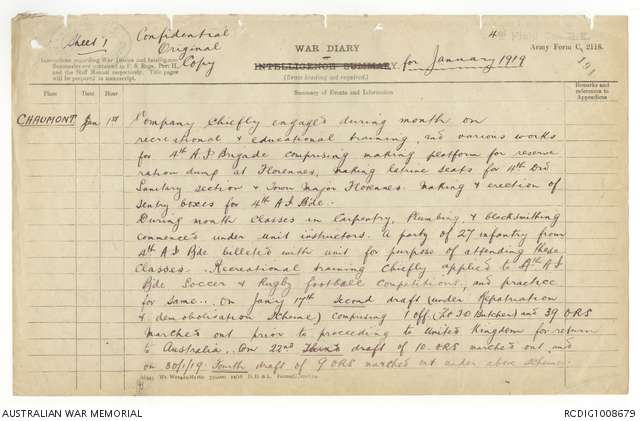 Sheet 1
Confidential
Original
Copy
4th Field Co. A.E.
WAR DIARY
INTELLIGENCE SUMMARY.
for January 1919
(Erase heading not required.)
Army Form C. 2118.
Instructions regarding War Diaries and Intelligence
Summaries are contained in F. S. Regs., Part II.,
and the Staff Manual respectively. Title pages
will be prepared in manuscript.
Place Date Hour Summary of Events and Information Remarks and references to Appendices
CHAUMONT Jan 1st Company chiefly engaged during month on
recreational & educational training, and various works
for 4th A I Brigade comprising making platform for reserve
ration dump at Florennes, making latrine seats for 4th Div
Sanitary section & Town Major Florennes. Making & erection of
sentry boxes for 4th A I Bde.
During month classes in Carpentry, Plumbing & blacksmithing
commenced under unit instructors. A party of 27 infantry from
4th A I Bde billeted with unit for purpose of attending these
classes. Recreational training chiefly applied to 4th A I
Bde Soccer & Rugby football competitions, and practice
for same. On Jany 17th second draft (under Repatriation
& demobilisation scheme) comprising 1 off. (Lt J O Butcher) and 39 ORS
marched out prior to proceeding to United Kingdom for return
to Australia. On 22nd Third draft of 10 ORS marched out and
on 30/1/19 Fourth draft of 9 ORS marched out under above scheme.
AUSTRALIAN WAR MEMORIAL
RCDIG1008679